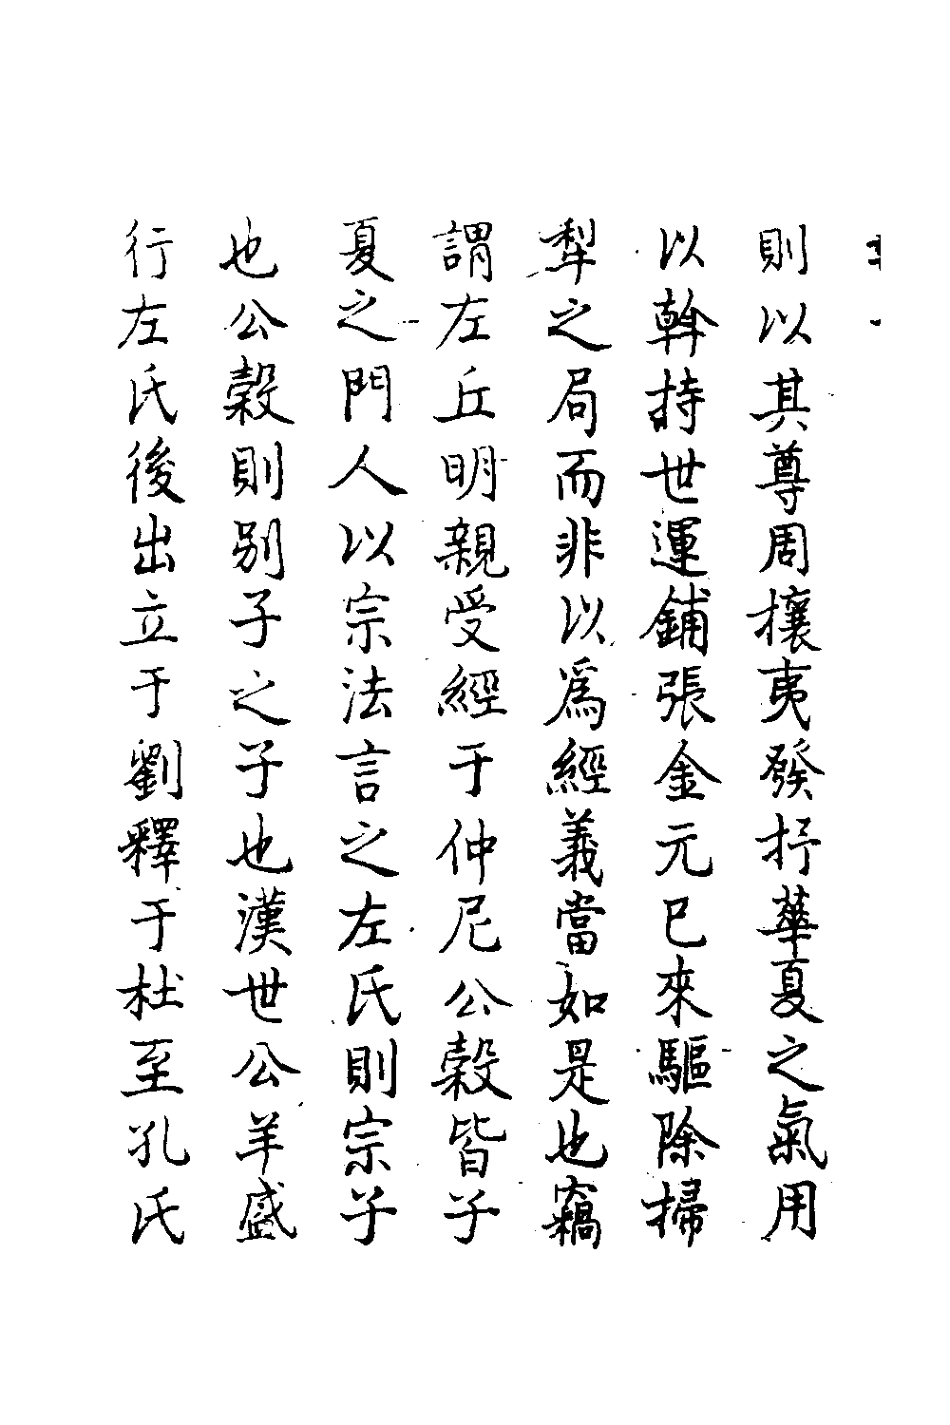 則以其尊周攘夷發抒華夏之氣用
以斡持世運鋪張金元已來驅除掃
犁之局而非以爲經義當如是也竊
謂左丘明親受經于仲尼公穀皆子
夏之門人以宗法言之左氏則宗子
也公穀則別子之子也漢世公羊盛
行左氏後出立于劉釋于杜至孔氏